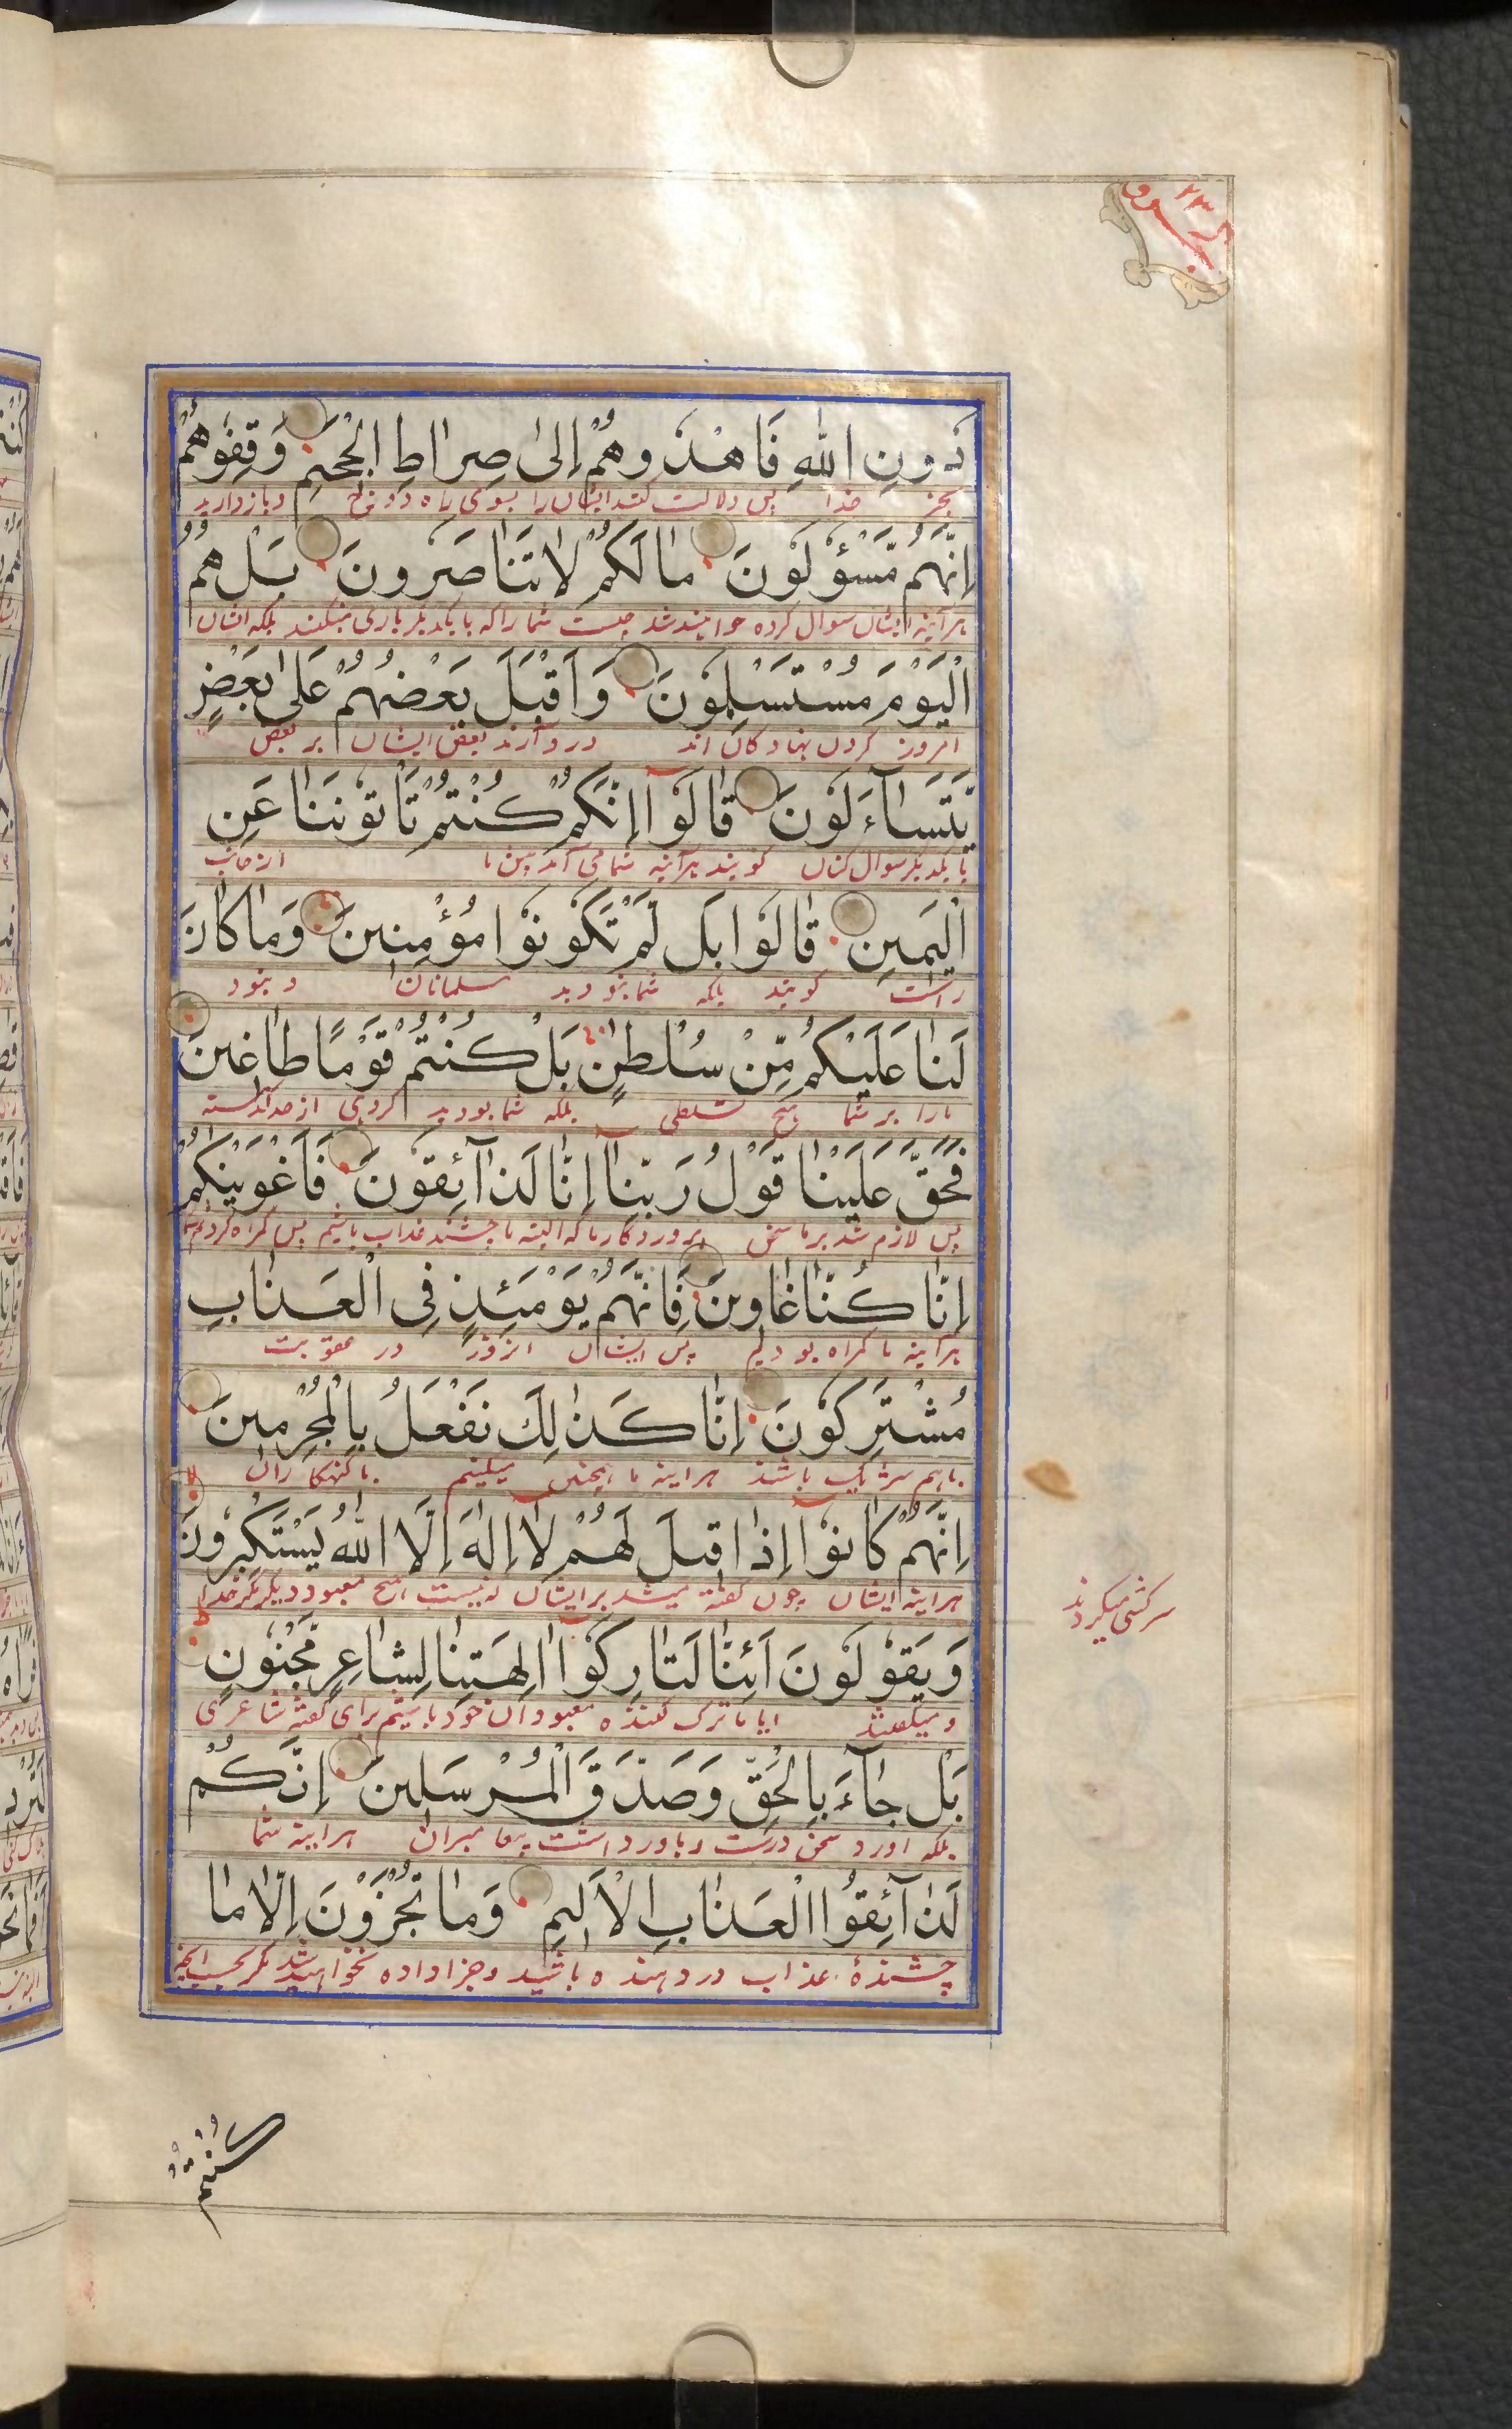 دُونِ اللّٰهِ فَاهْدُوهُمْ إِلىٰ صِرَاطِ الْجَحِيمِ وَقِفُوهُمْ
بجز خدا پس دلالت کنند ایشان را بسوی راه دوزخ و باز دارید
إِنَّهُمْ مَّسْؤُلُوْنَ مٰا لَكُمْ لَا تَنٰاصَرُونَ بَلْ هُمُ
هر آینه ایشان سوال کرده خواهند شد چیست شما را که با یکدیگر یاری نمیکنند بلکه ایشان
الْيَوْمَ مُسْتَسْلِمُوْنَ وَأَقْبَلَ بَعْضُهُمْ عَلىٰ بَعْضٍ
امروز گردن نهاد کان اند و رو آرند بعض ایشان بر بعض
يَّتَسَآءَلُوْنَ قٰالُوْآ اِنَّكُمْ كُنْتُمْ تَأْتُوْنَنٰا عَنِ
با یکدیگر سوال کنان گویند هر آینه شما می آمدید پیش ما از جانب
الْيَمِينِ قٰالُوْا بَل لَّمْ تَكُوْنُوْا مُؤْمِنِينَ وَمٰا كٰانَ
راست گویند بلکه شما نبودید مسلمانان و نبود
لَنٰا عَلَيْكُمْ مِّنْ سُلْطٰنٍ بَلْ كُنْتُمْ قَوْمًا طٰاغِينَ
مارا بر شما هیچ تسلطی بلکه شما بودید گروهی از حد گذشته
فَحَقَّ عَلَيْنٰا قَوْلُ رَبِّنٰآ اِنّٰا لَذٰآئِقُوْنَ فَأَغْوَيْنٰكُمْ
پس لازم شد بر ما سخن پروردگار ما که البته ما چشنده عذاب باشیم پس گمراه کردیم شما
اِنّٰا كُنّٰا غٰاوِينَ فَاِنَّهُمْ يَوْمَئِذٍ فِى الْعَذٰابِ
هر آینه ما گمراه بودیم پس ایشان انروز در عقوبت
مُشْتَرِكُوْنَ اِنّٰا كَذٰلِكَ نَفْعَلُ بِالْمُجْرِمِينَ
باهم شریک باشند هر اینه ما همچنین میکنیم با کنهکا ران
اِنَّهُمْ كٰانُوْآ اِذٰا قِيلَ لَهُمْ لَآ اِلٰهَ اِلَّا اللّٰهُ يَسْتَكْبِرُونَ
هر اینه ایشان چون گفته میشد بر ایشان که نیست هیچ معبود دیگر مگر خدا
سرکشی میکردند
وَيَقُوْلُوْنَ اَئِنّٰا لَتٰارِكُوْآ اٰلِهَتِنٰا لِشٰاعِرٍ مَّجْنُوْنٍ
و میگفتند ایا ما ترک کننده معبودان خود باشیم برای گفته شاعری
بَلْ جٰآءَ بِالْحَقِّ وَصَدَّقَ الْمُرْسَلِينَ اِنَّكُمْ
بلکه اورد سخن درست و باور داشت پیغامبران هر اینه شما
لَذٰآئِقُوا الْعَذٰابِ الْاَلِيمِ وَمٰا تُجْزَوْنَ اِلّٰا مٰا
چشنده عذاب درد دهنده باشید و جزا داده نخواهید شد مگر بحسب انچه
كُنْتُمْ